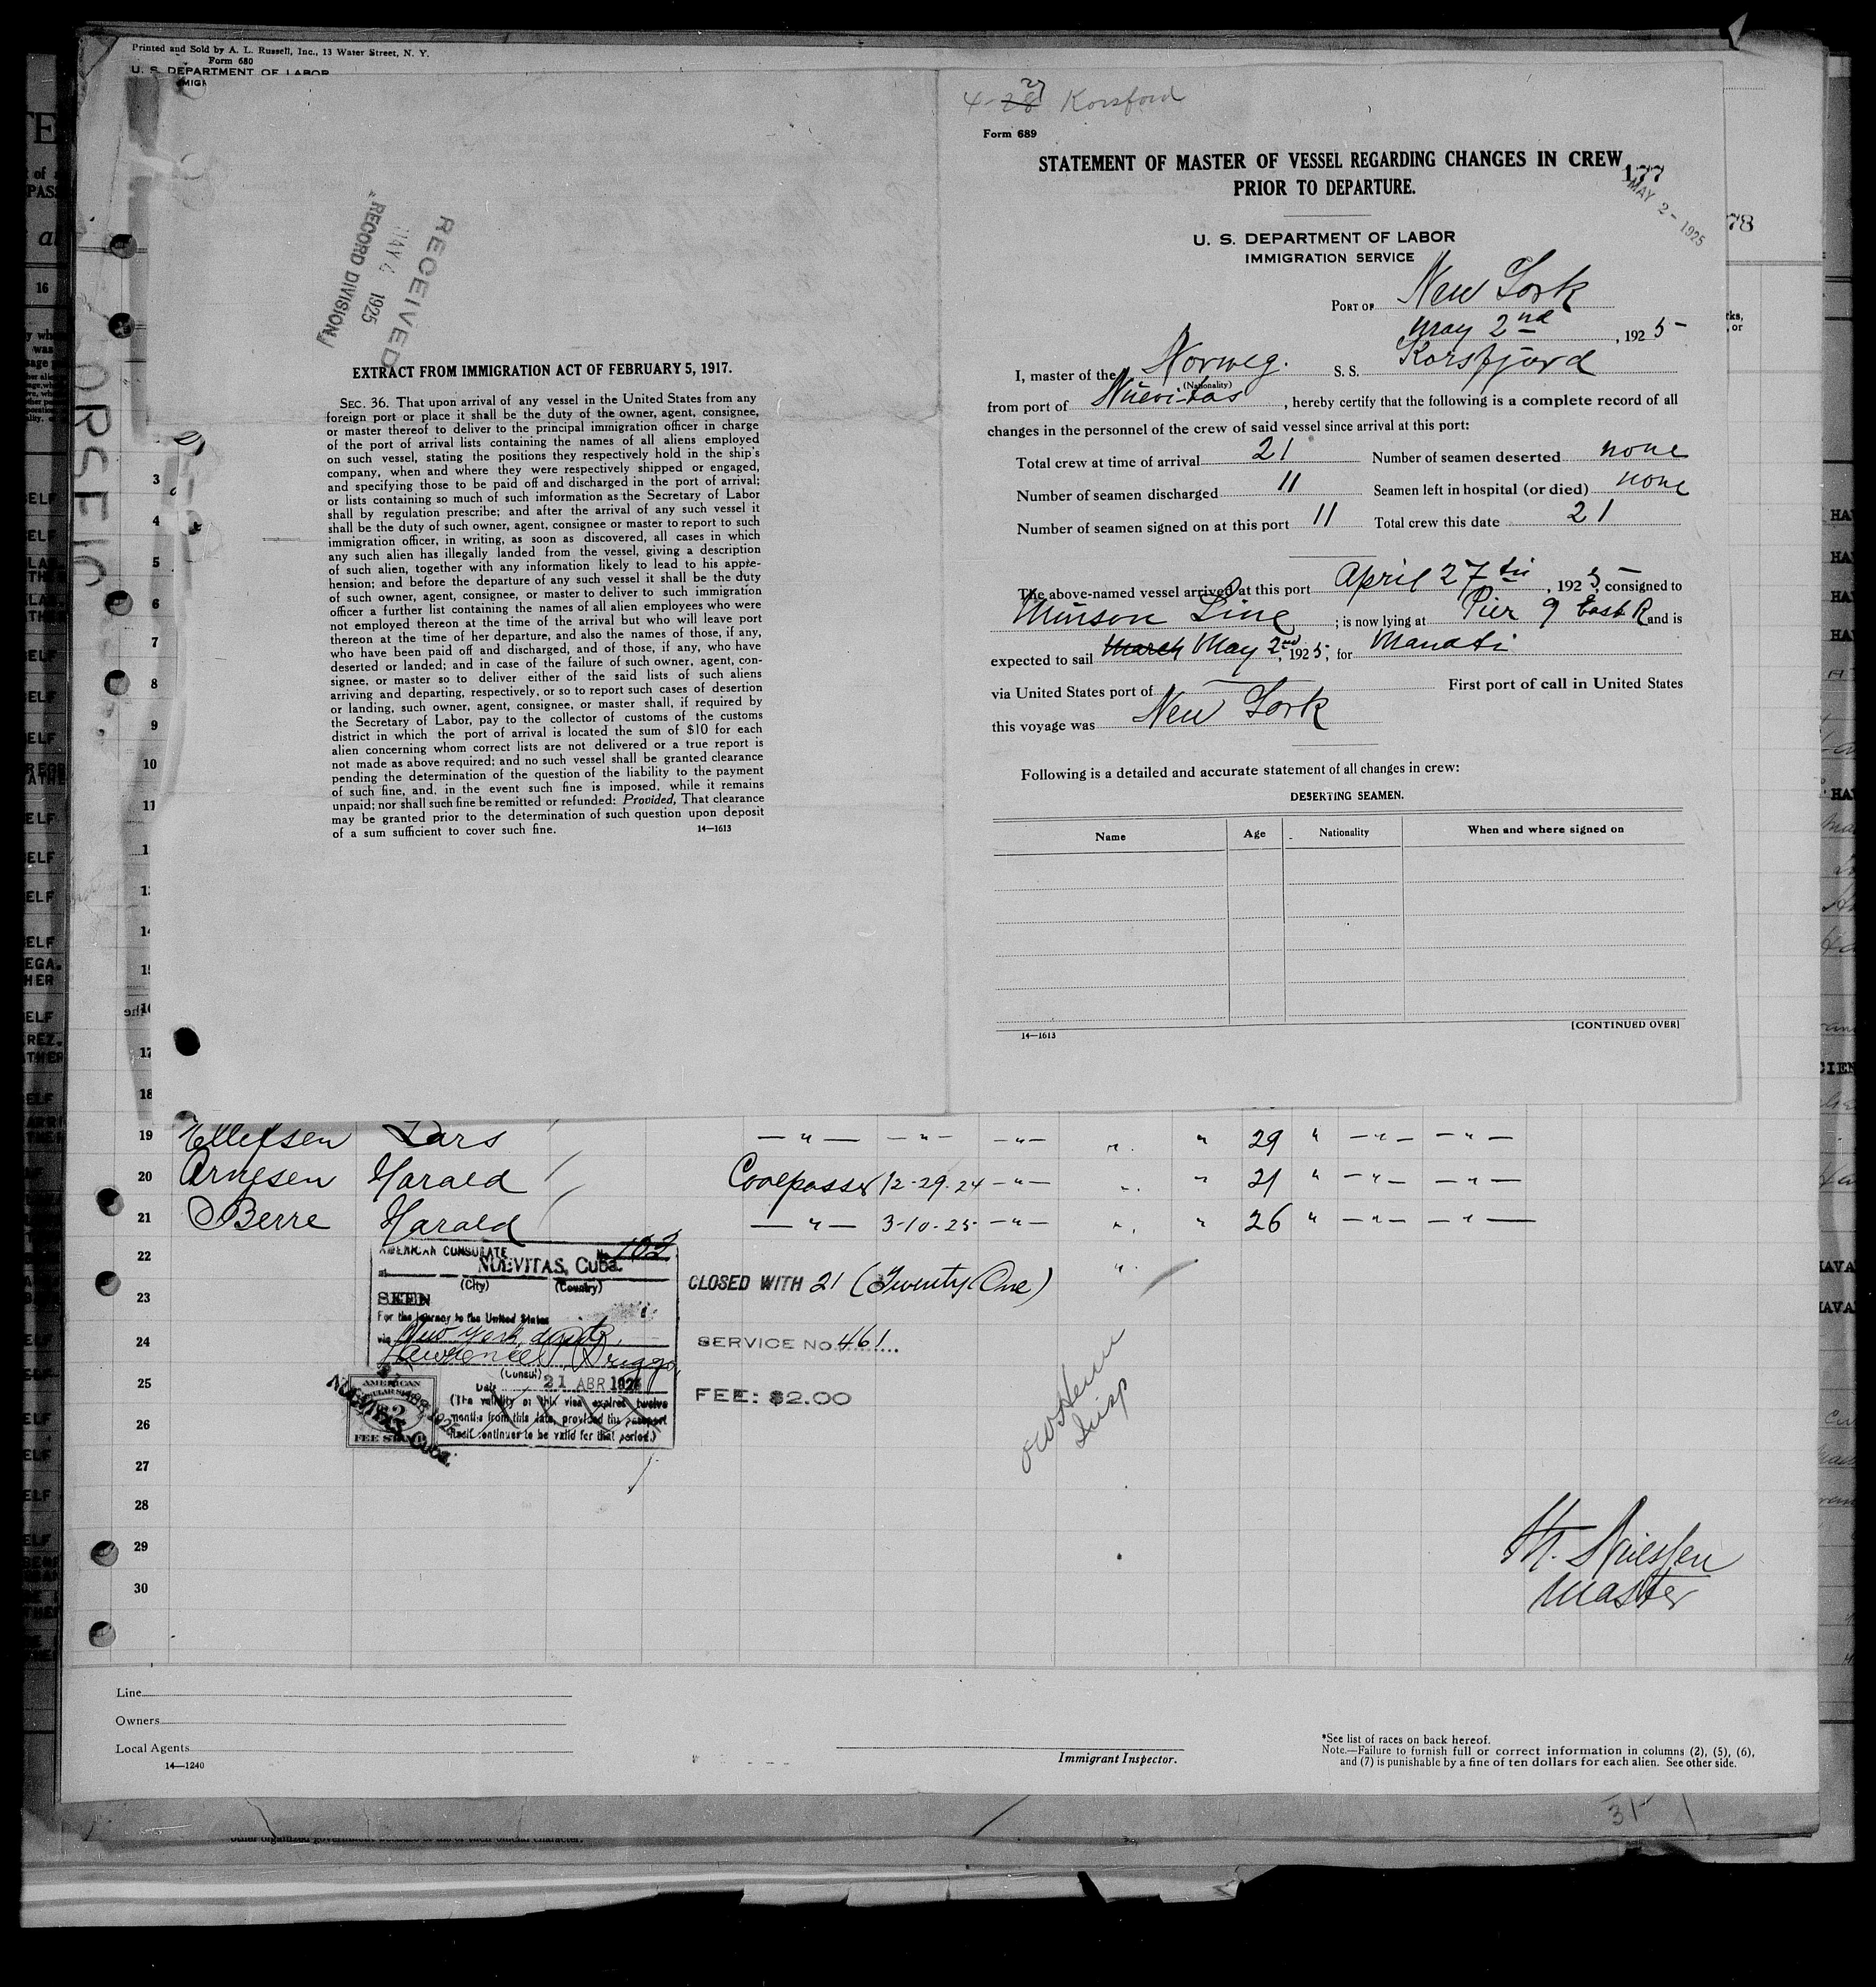 Printed and Sold by A. L. Russell, Inc., 13 Water Street, N. Y.
Form 680
U. S. DEPARTMENT OF LABOR
RECEIVED
MAY 4 1925
RECORD DIVISION
EXTRACT FROM IMMIGRATION ACT OF FEBRUARY 5, 1917.
SEC. 36. That upon arrival of any vessel in the United States from any
foreign port or place it shall be the duty of the owner, agent, consignee,
or master thereof to deliver to the principal immigration officer in charge
of the port of arrival lists containing the names of all aliens employed
on such vessel, stating the positions they respectively hold in the ship's
company, when and where they were respectively shipped or engaged,
and specifying those to be paid off and discharged in the port of arrival;
or lists containing so much of such imformation as the Secretary of Labor
shall by regulation prescribe; and after the arrival of any such vessel it
shall be the duty of such owner, agent, consignee or master to report to such
immigration officer, in writing, as soon as discovered, all cases in which
any such alien has illegally landed from the vessel, giving a description
of such alien, together with any information likely to lead to his appre-
hension; and before the departure of any such vessel it shall be the duty
of such owner, agent, consignee, or master to deliver to such immigration
officer a further list containing the names of all alien employees who were
not employed thereon at the time of the arrival but who will leave port
thereon at the time of her departure, and also the names of those, if any,
who have been paid off and discharged, and of those, if any, who have
deserted or landed; and in case of the failure of such owner, agent, con-
signee, or master so to deliver either of the said lists of such aliens
arriving and departing, respectively, or so to report such cases of desertion
or landing, such owner, agent, consignee, or master shall, if required by
the Secretary of Labor, pay to the collector of customs of the customs
district in which the port of arrival is located the sum of $10 for each
alien concerning whom correct lists are not delivered or a true report is
not made as above required; and no such vessel shall be granted clearance
pending the determination of the question of the liability to the payment
of such fine, and, in the event such fine is imposed, while it remains
unpaid; nor shall such fine be remitted or refunded: Provided, That clearance
may be granted prior to the determination of such question upon deposit
of a sum sufficient to cover such fine. 14—1613
4-28 27 Korsford
Form 689
STATEMENT OF MASTER OF VESSEL REGARDING CHANGES IN CREW
PRIOR TO DEPARTURE.
177
MAY 2 - 1925
78
U. S. DEPARTMENT OF LABOR
IMMIGRATION SERVICE
PORT OF New York
May 2nd, 1925
I, master of the Norweg. S. S. Korsfjord
(Nationality)
from port of Nuevitas, hereby certify that the following is a complete record of all
changes in the personnel of the crew of said vessel since arrival at this port:
Total crew at time of arrival 21 Number of seamen deserted none
Number of seamen discharged 11 Seamen left in hospital (or died) none
Number of seamen signed on at this port 11 Total crew this date 21
The above-named vessel arrived at this port April 27th, 1925, consigned to
Munson Line; is now lying at Pier 9 East R and is
expected to sail March May 2nd, 1925, for Manati
via United States port of — First port of call in United States
this voyage was New York
Following is a detailed and accurate statement of all changes in crew:
DESERTING SEAMEN.
Name Age Nationality When and where signed on
14—1613 [CONTINUED OVER]
3
4
5
6
7
8
9
10
11
17
18
19 Ellefsen Lars — " — — " — — " — " " 29 " — " — — " —
20 Arnesen Harald Coalpasser 12-29-24 — " — " " 21 " — " — — " —
21 Berre Harald — " — 3-10-25 — " — " " 26 " — " — — " —
22
23
24
25
26
27
28
29
30
AMERICAN CONSULATE No. 102
at NUEVITAS, Cuba.
(City) (Country)
SEEN
For the journey to the United States
via New York, direct
Lawrence P. Briggs
(Consul)
Date 21 ABR 1925
(The validity of this visa expires twelve
months from this date, provided the passport
itself continues to be valid for that period.)
AMERICAN
CONSULAR SERVICE
2
FEE STAMP
NUEVITAS, Cuba.
CLOSED WITH 21 (Twenty One)
SERVICE NO. 461
FEE: $2.00
Insp
Master
Line
Owners
Local Agents
14—1240
Immigrant Inspector.
*See list of races on back hereof.
Note.—Failure to furnish full or correct information in columns (2), (5), (6),
and (7) is punishable by a fine of ten dollars for each alien. See other side.
31